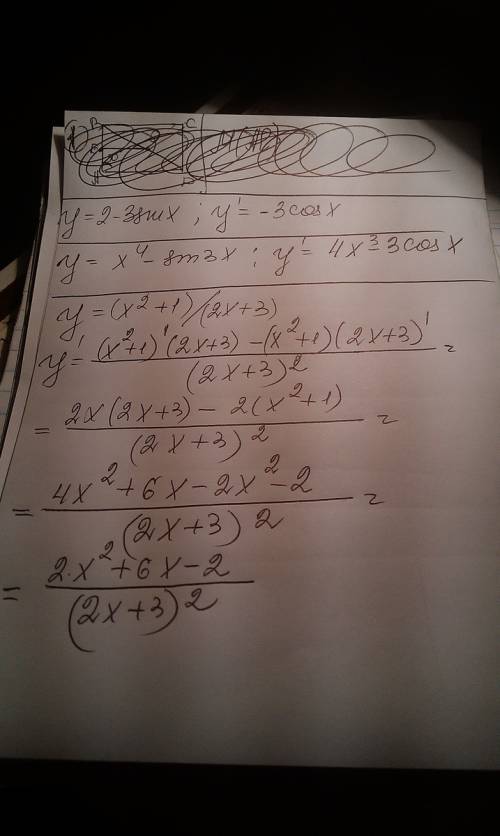 y = 2 - 3sinx ; y' = -3cosx
y = x⁴ - sin3x ; y' = 4x³ - 3cosx
y = (x²+1)/(2x+3)
y' = ((x²+1)'(2x+3) - (x²+1)(2x+3)')/(2x+3)² =
= (2x(2x+3) - 2(x²+1))/(2x+3)² =
= (4x²+6x-2x²-2)/(2x+3)² =
= (2·x²+6x-2)/(2x+3)²